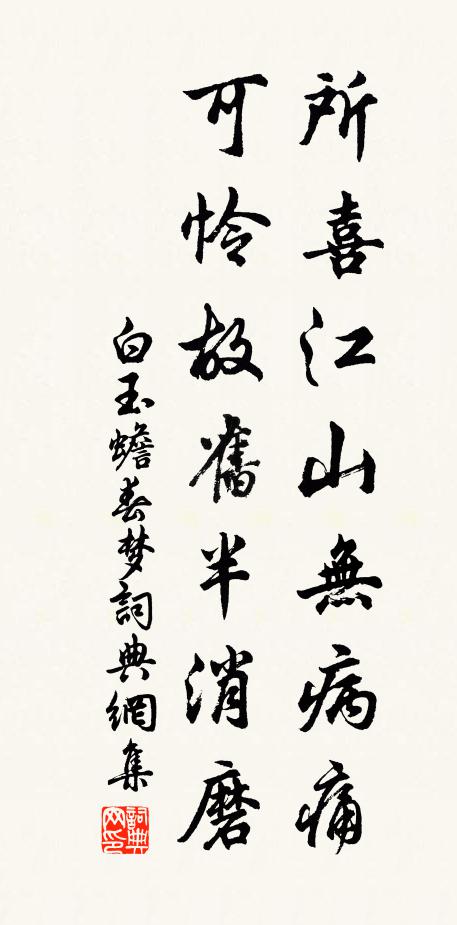 所喜江山無病痛
可怜故舊半消磨
白玉蟾春梦詞典網集
詞典
网印